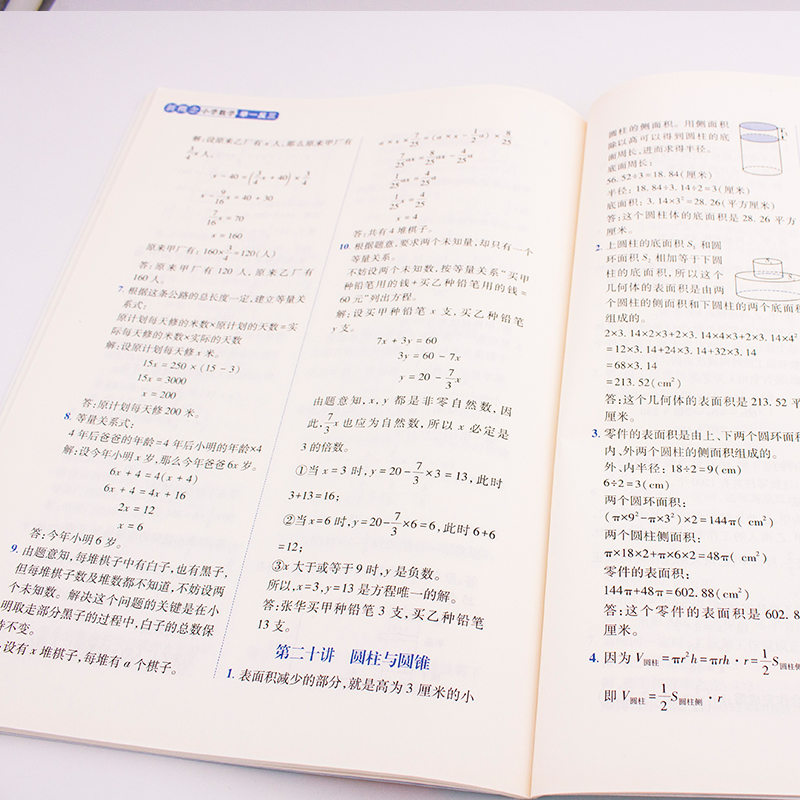 新概念小学数学举一反三
解:设原来乙厂有x人,那么原来甲厂有
3/4x人。
x-40=(3/4x+40)×3/4
x-9/16x=40+30
7/16x=70
x=160
原来甲厂有:160×3/4=120(人)
答:原来甲厂有120人,原来乙厂有
160人。
7. 根据这条公路的总长度一定,建立等量关
系式:
原计划每天修的米数×原计划的天数=实
际每天修的米数×实际的天数
解:设原计划每天修x米。
15x=250×(15-3)
15x=3000
x=200
答:原计划每天修200米。
8. 等量关系式:
4年后爸爸的年龄=4年后小明的年龄×4
解:设今年小明x岁,那么今年爸爸6x岁。
6x+4=4(x+4)
6x+4=4x+16
2x=12
x=6
答:今年小明6岁。
9. 由题意知,每堆棋子中有白子,也有黑子,
但每堆棋子数及堆数都不知道,不妨设两
个未知数。解决这个问题的关键是在小
明取走部分黑子的过程中,白子的总数保
持不变。
:设有x堆棋子,每堆有a个棋子。
a×x×7/25=(a×x-1/2a)×8/25
7/25ax=8/25ax-4/25a
1/25ax=4/25a
1/25x=4/25
x=4
答:共有4堆棋子。
10. 根据题意,要求两个未知量,却只有一个
等量关系。
不妨设两个未知数,按等量关系“买甲
种铅笔用的钱+买乙种铅笔用的钱=
60元”列出方程。
解:设买甲种铅笔x支,买乙种铅笔
y支。
7x+3y=60
3y=60-7x
y=20-7/3x
由题意知,x,y都是非零自然数,因
此,7/3x也应为自然数,所以x必定是
3的倍数。
①当x=3时,y=20-7/3×3=13,此时
3+13=16;
②当x=6时,y=20-7/3×6=6,此时6+6
=12;
③x大于或等于9时,y是负数。
所以,x=3,y=13是方程唯一的解。
答:张华买甲种铅笔3支,买乙种铅笔
13支。
第二十讲 圆柱与圆锥
1. 表面积减少的部分,就是高为3厘米的小
圆柱的侧面积。用侧面积
除以高可以得到圆柱的底
面周长,进而求得半径。
底面周长:
56.52÷3=18.84(厘米)
半径:18.84÷3.14÷2=3(厘米)
底面积:3.14×3²=28.26(平方厘米)
答:这个圆柱体的底面积是28.26平方
厘米。
2. 上圆柱的底面积S₁和圆
环面积S₂相加等于下圆
柱的底面积,所以这个
几何体的表面积是由两
个圆柱的侧面积和下圆柱的两个底面积
组成的。
2×3.14×2×3+2×3.14×4×3+2×3.14×4²
=12×3.14+24×3.14+32×3.14
=68×3.14
=213.52(cm²)
答:这个几何体的表面积是213.52平
厘米。
3. 零件的表面积是由上、下两个圆环面积
内、外两个圆柱的侧面积组成的。
外、内半径:18÷2=9(cm)
6÷2=3(cm)
两个圆环面积:
(π×9²-π×3²)×2=144π(cm²)
两个圆柱侧面积:
π×18×2+π×6×2=48π(cm²)
零件的表面积:
144π+48π=602.88(cm²)
答:这个零件的表面积是602.8
厘米。
4. 因为V圆柱=πr²h=πrh·r=1/2S圆柱侧
即V圆柱=1/2S圆柱侧·r